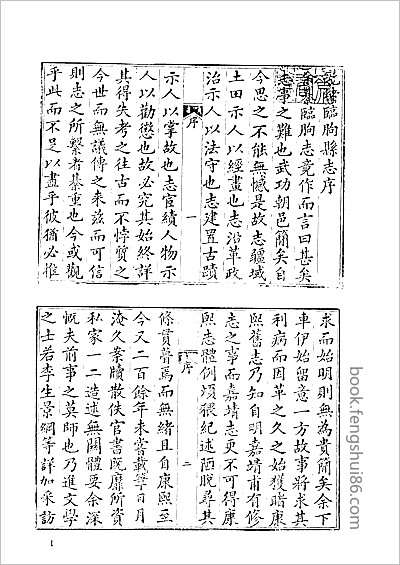 臨朐縣志序
臨朐志竟作而言曰甚矣
志事之難也武功朝邑簡矣自
今思之不能無憾是故志疆域
土田示人以經畫也志沿革政
治示人以法守也志建置古蹟
序 一
示人以掌故也志官績人物示
人以勸懲也故必究其始終詳
其得失考之往古而不悖質之
今世而無議傳之來茲而可信
則志之所繫者綦重也今或觀
乎此而不足以盡乎彼猶必推
求而始明則無為貴簡矣余下
車伊始留意一方故事將求其
利病而因革之久之始獲睹康
熙舊志乃知自明嘉靖甫有修
志之事而嘉靖志更不可得康
熙志體例煩猥紀述陋脫尋其
序 二
條貫焉而無緒且自康熙至
今又二百餘年未嘗載筆日月
淹久案牘散佚官書既靡所資
私家一二造述無關體要余深
慨夫前事之莫師也乃進文學
之士若李生景綱等詳加采訪
1
book.fengshui86.com